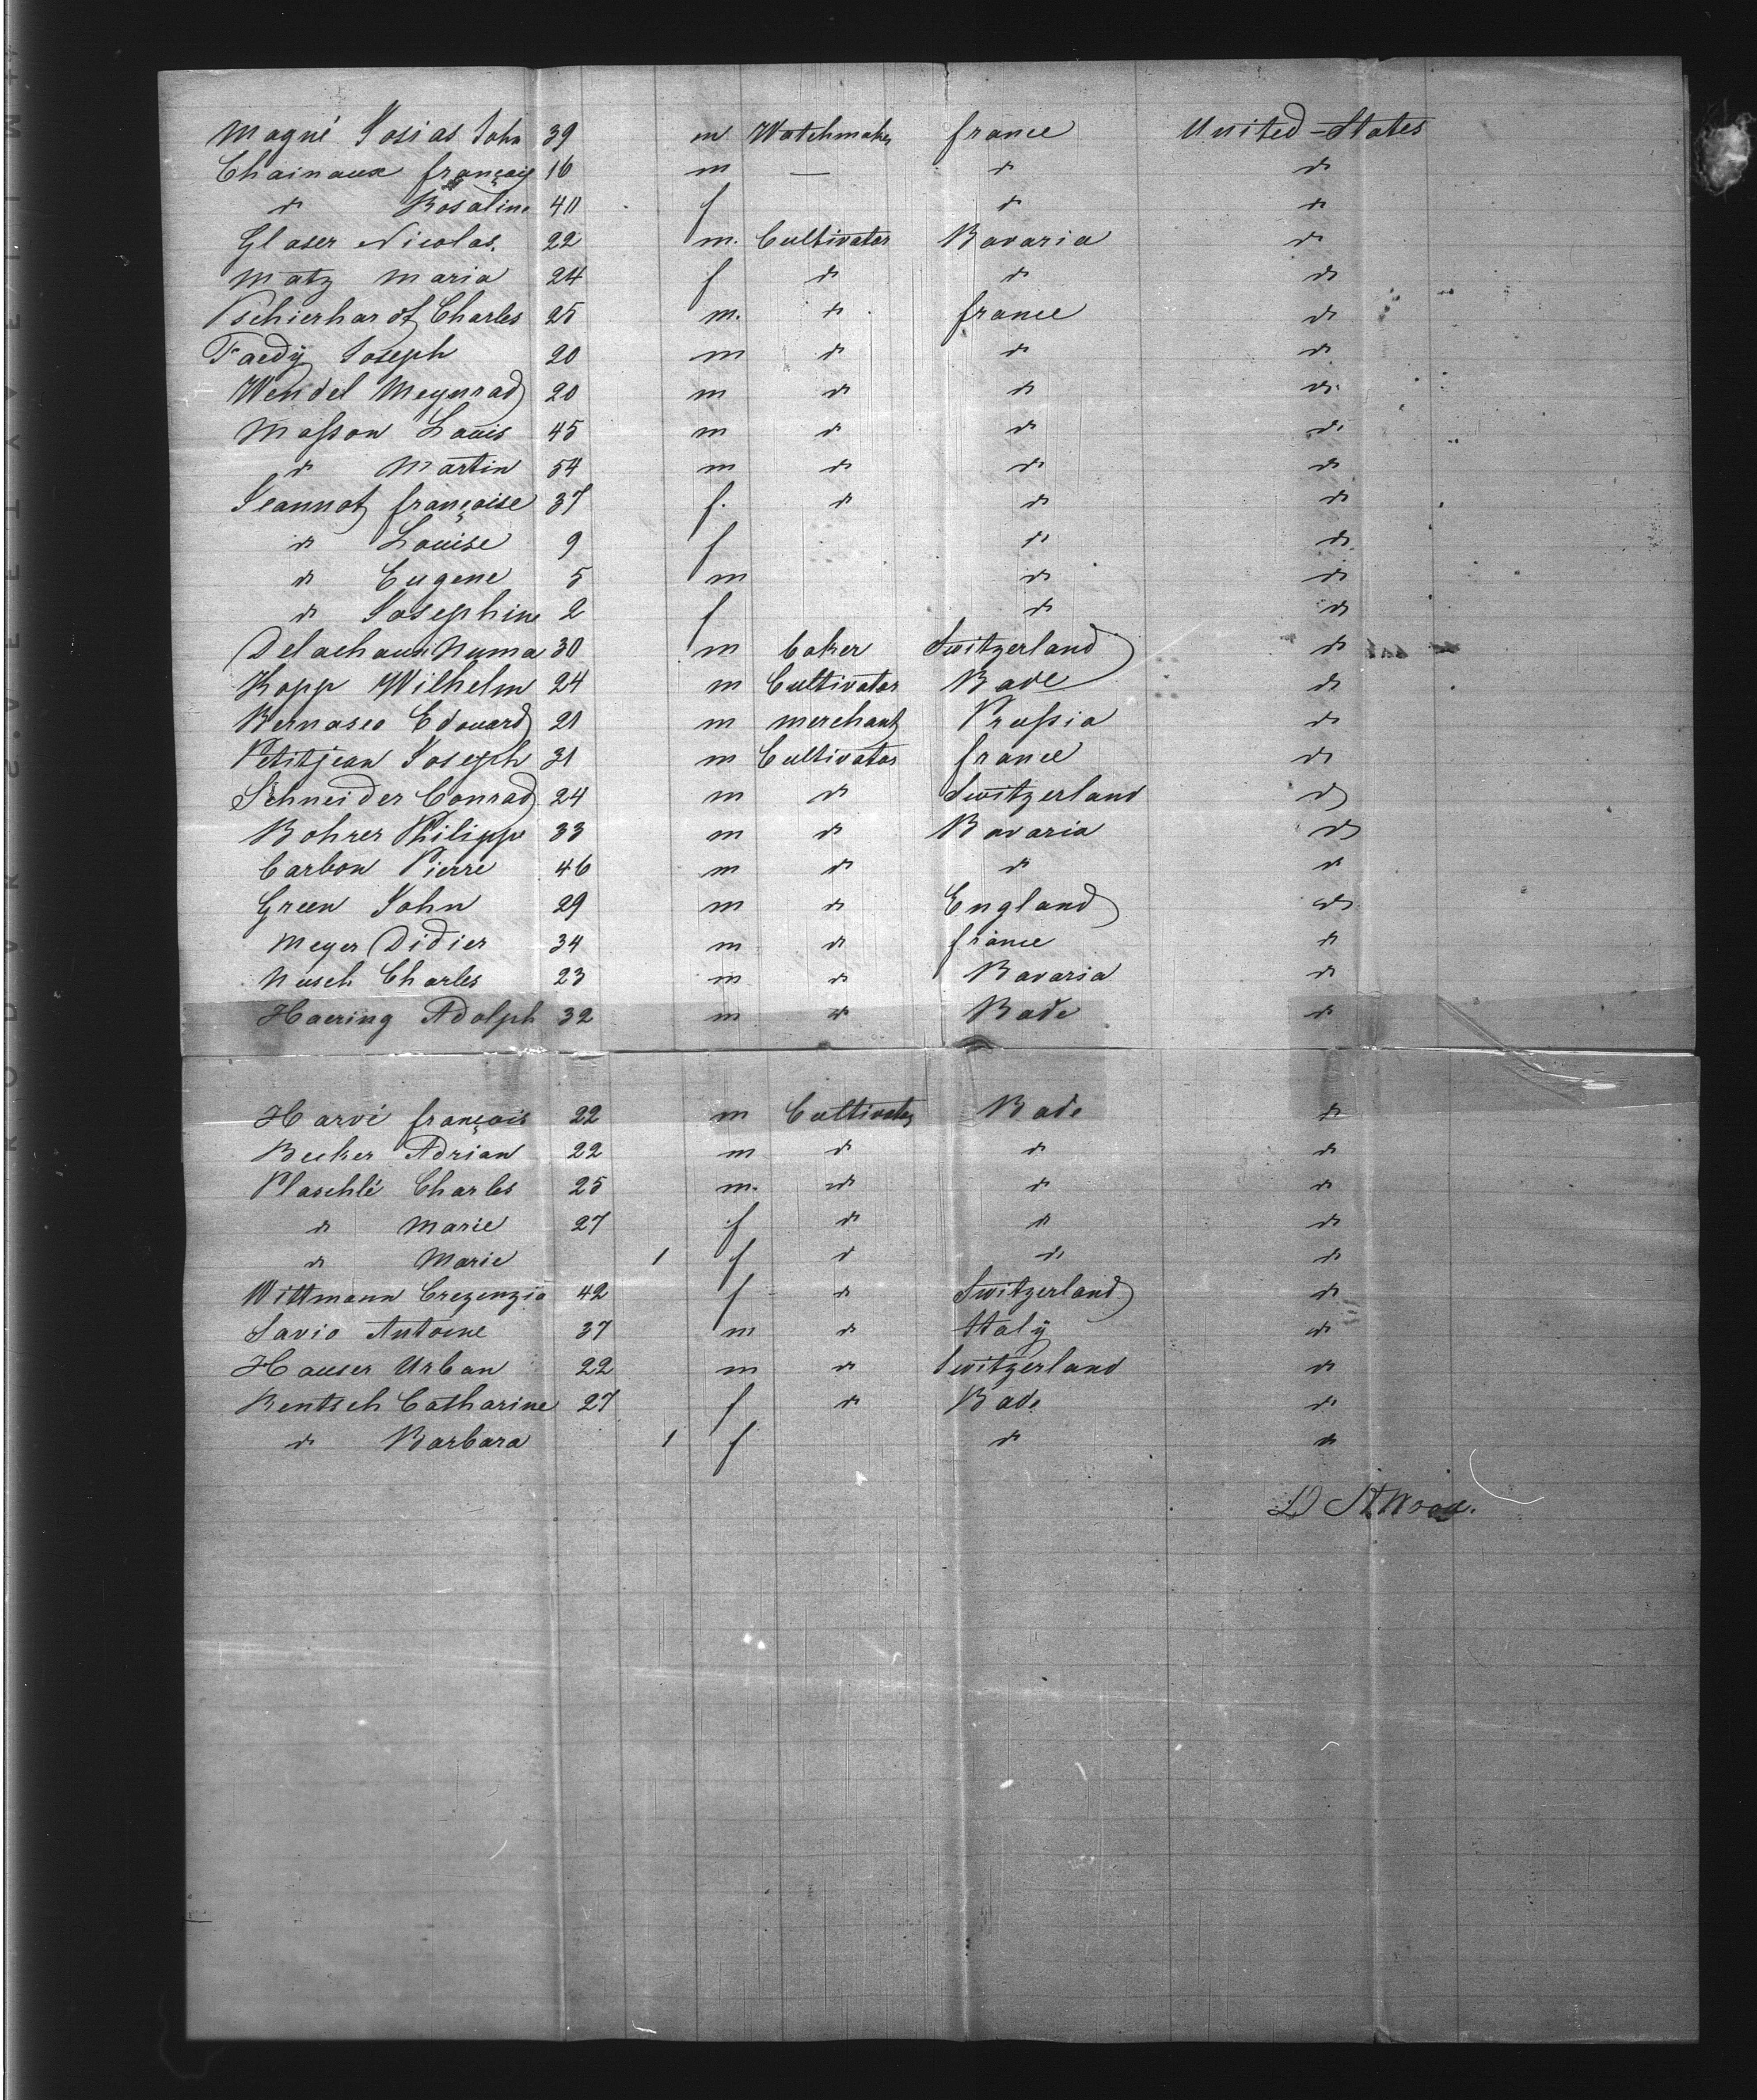 Magné Josias John 39 m Watchmaker france United-States
Chainaux françois 16 m — do do
do Rosaline 40 f do do
Glaser Nicolas. 22 m. Cultivator Bavaria do
Matz Maria 24 f do do do
Pschierhardt Charles 25 m. do france do
Faedy Joseph 20 m do do do
Wendel Meynrad 20 m do do do
Masson Louis 45 m do do do
do Martin 54 m do do do
Jeannot françoise 37 f. do do do
do Louise 9 f do do
do Eugene 5 m do do
do Josephine 2 f do do
Delachaux Numa 30 m baker Switzerland do
Kopp Wilhelm 24 m Cultivator Bade do
Bernasco Edouard 21 m merchant Prussia do
Petitjean Joseph 31 m Cultivator france do
Schneider Conrad 24 m do Switzerland do
Bohrer Philippe 33 m do Bavaria do
Carbon Pierre 46 m do do do
Green John 29 m do England do
Meyer Didier 34 m do france do
Nusch Charles 23 m do Bavaria do
Haering Adolph 32 m do Bade do
Harvé françois 22 m Cultivator Bade do
Becker Adrian 22 m do do do
Plaschlé Charles 25 m. do do do
do Marie 27 f do do do
do Marie 1 f do do do
Wittmann Crezenzia 42 f do Switzerland do
Savio Antoine 37 m do Italy do
Hauser Urban 22 m do Switzerland do
Rentsch Catharine 27 f do Bade do
do Barbara 1 f do do